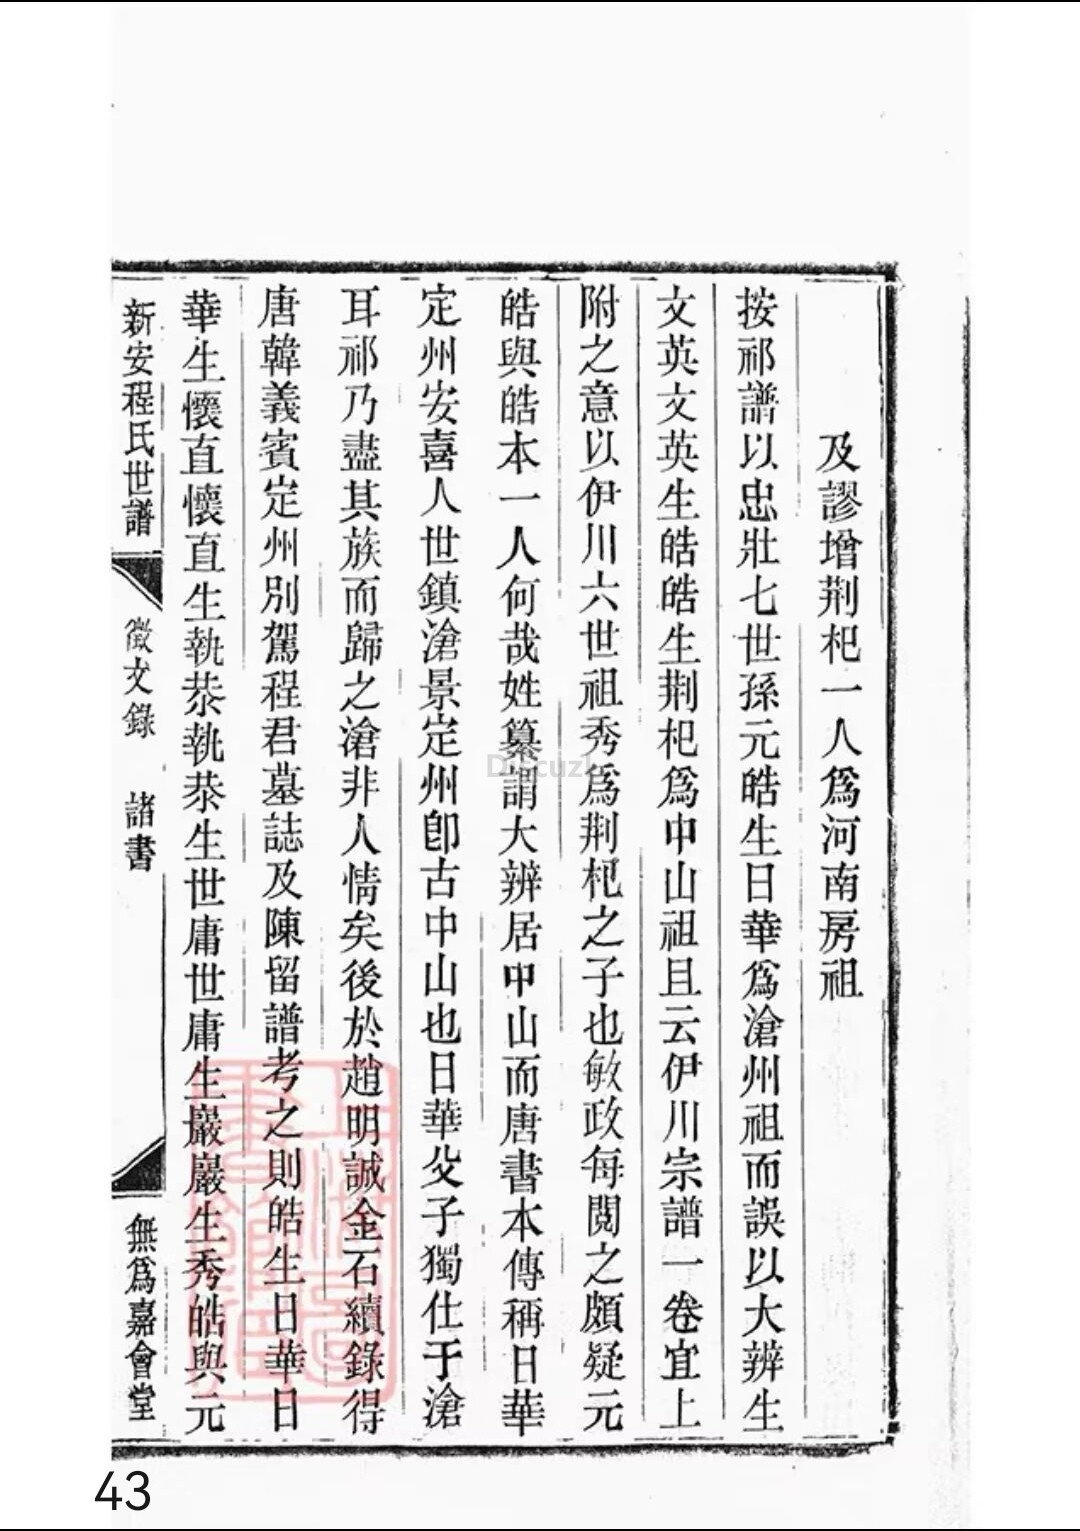 及謬增荆杞一人爲河南房祖
按祁譜以忠壯七世孫元皓生日華爲滄州祖而誤以大辨生
文英文英生皓皓生荆杞爲中山祖且云伊川宗譜一卷宜上
附之意以伊川六世祖秀爲荆杞之子也敏政每閱之頗疑元
皓與皓本一人何哉姓纂謂大辨居中山而唐書本傳稱日華
定州安喜人世鎮滄景定州卽古中山也日華父子獨仕于滄
耳祁乃盡其族而歸之滄非人情矣後於趙明誠金石續錄得
唐韓義賓定州別駕程君墓誌及陳留譜考之則皓生日華日
華生懷直懷直生執恭執恭生世庸世庸生巖巖生秀皓與元
新安程氏世譜
徵文錄 諸書
無爲嘉會堂
Discuz!
43